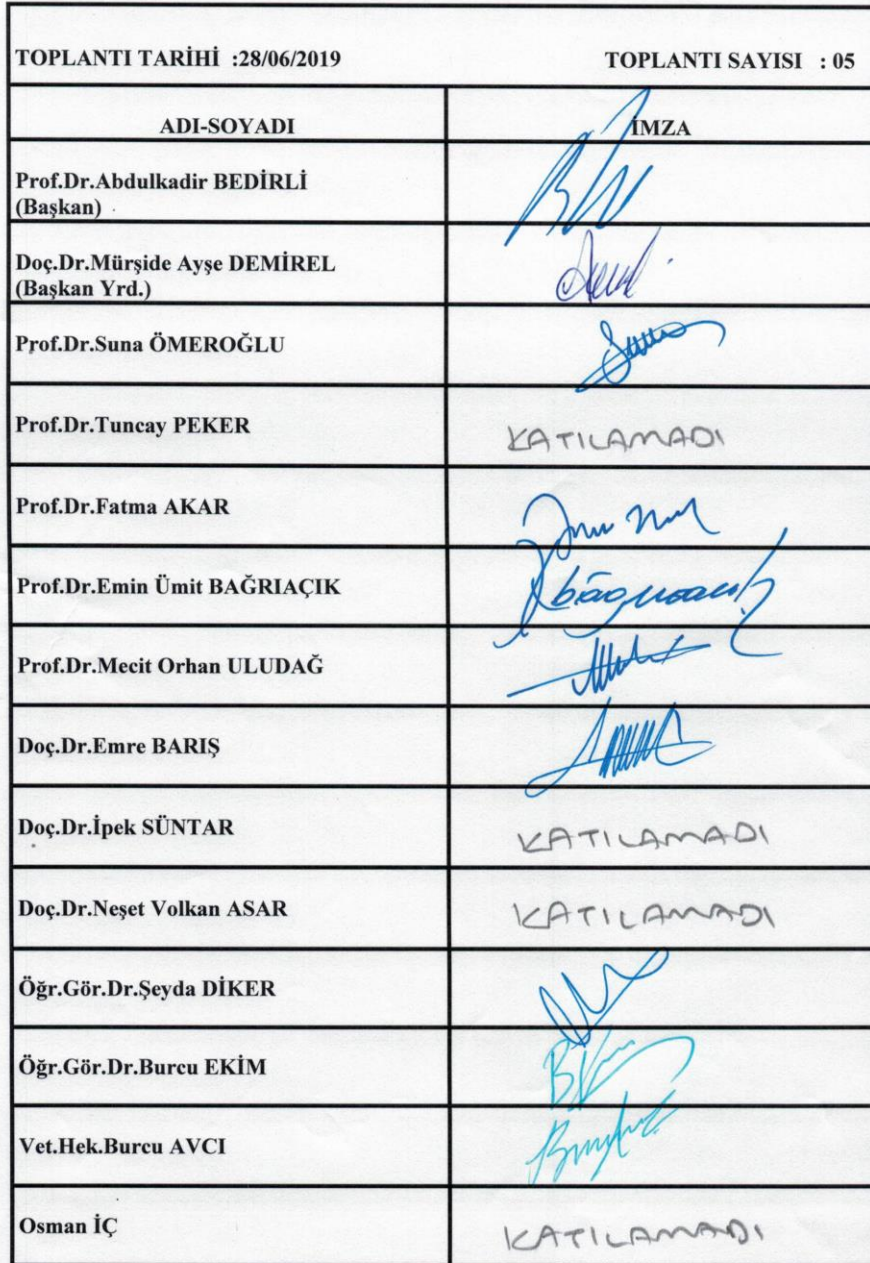 TOPLANTI TARİHİ :28/06/2019 TOPLANTI SAYISI : 05
ADI-SOYADI İMZA
Prof.Dr.Abdulkadir BEDİRLİ
(Başkan)
Doç.Dr.Mürşide Ayşe DEMİREL
(Başkan Yrd.)
Prof.Dr.Suna ÖMEROĞLU
Prof.Dr.Tuncay PEKER KATILAMADI
Prof.Dr.Fatma AKAR
Prof.Dr.Emin Ümit BAĞRIAÇIK
Prof.Dr.Mecit Orhan ULUDAĞ
Doç.Dr.Emre BARIŞ
Doç.Dr.İpek SÜNTAR KATILAMADI
Doç.Dr.Neşet Volkan ASAR KATILAMADI
Öğr.Gör.Dr.Şeyda DİKER
Öğr.Gör.Dr.Burcu EKİM
Vet.Hek.Burcu AVCI
Osman İÇ KATILAMADI